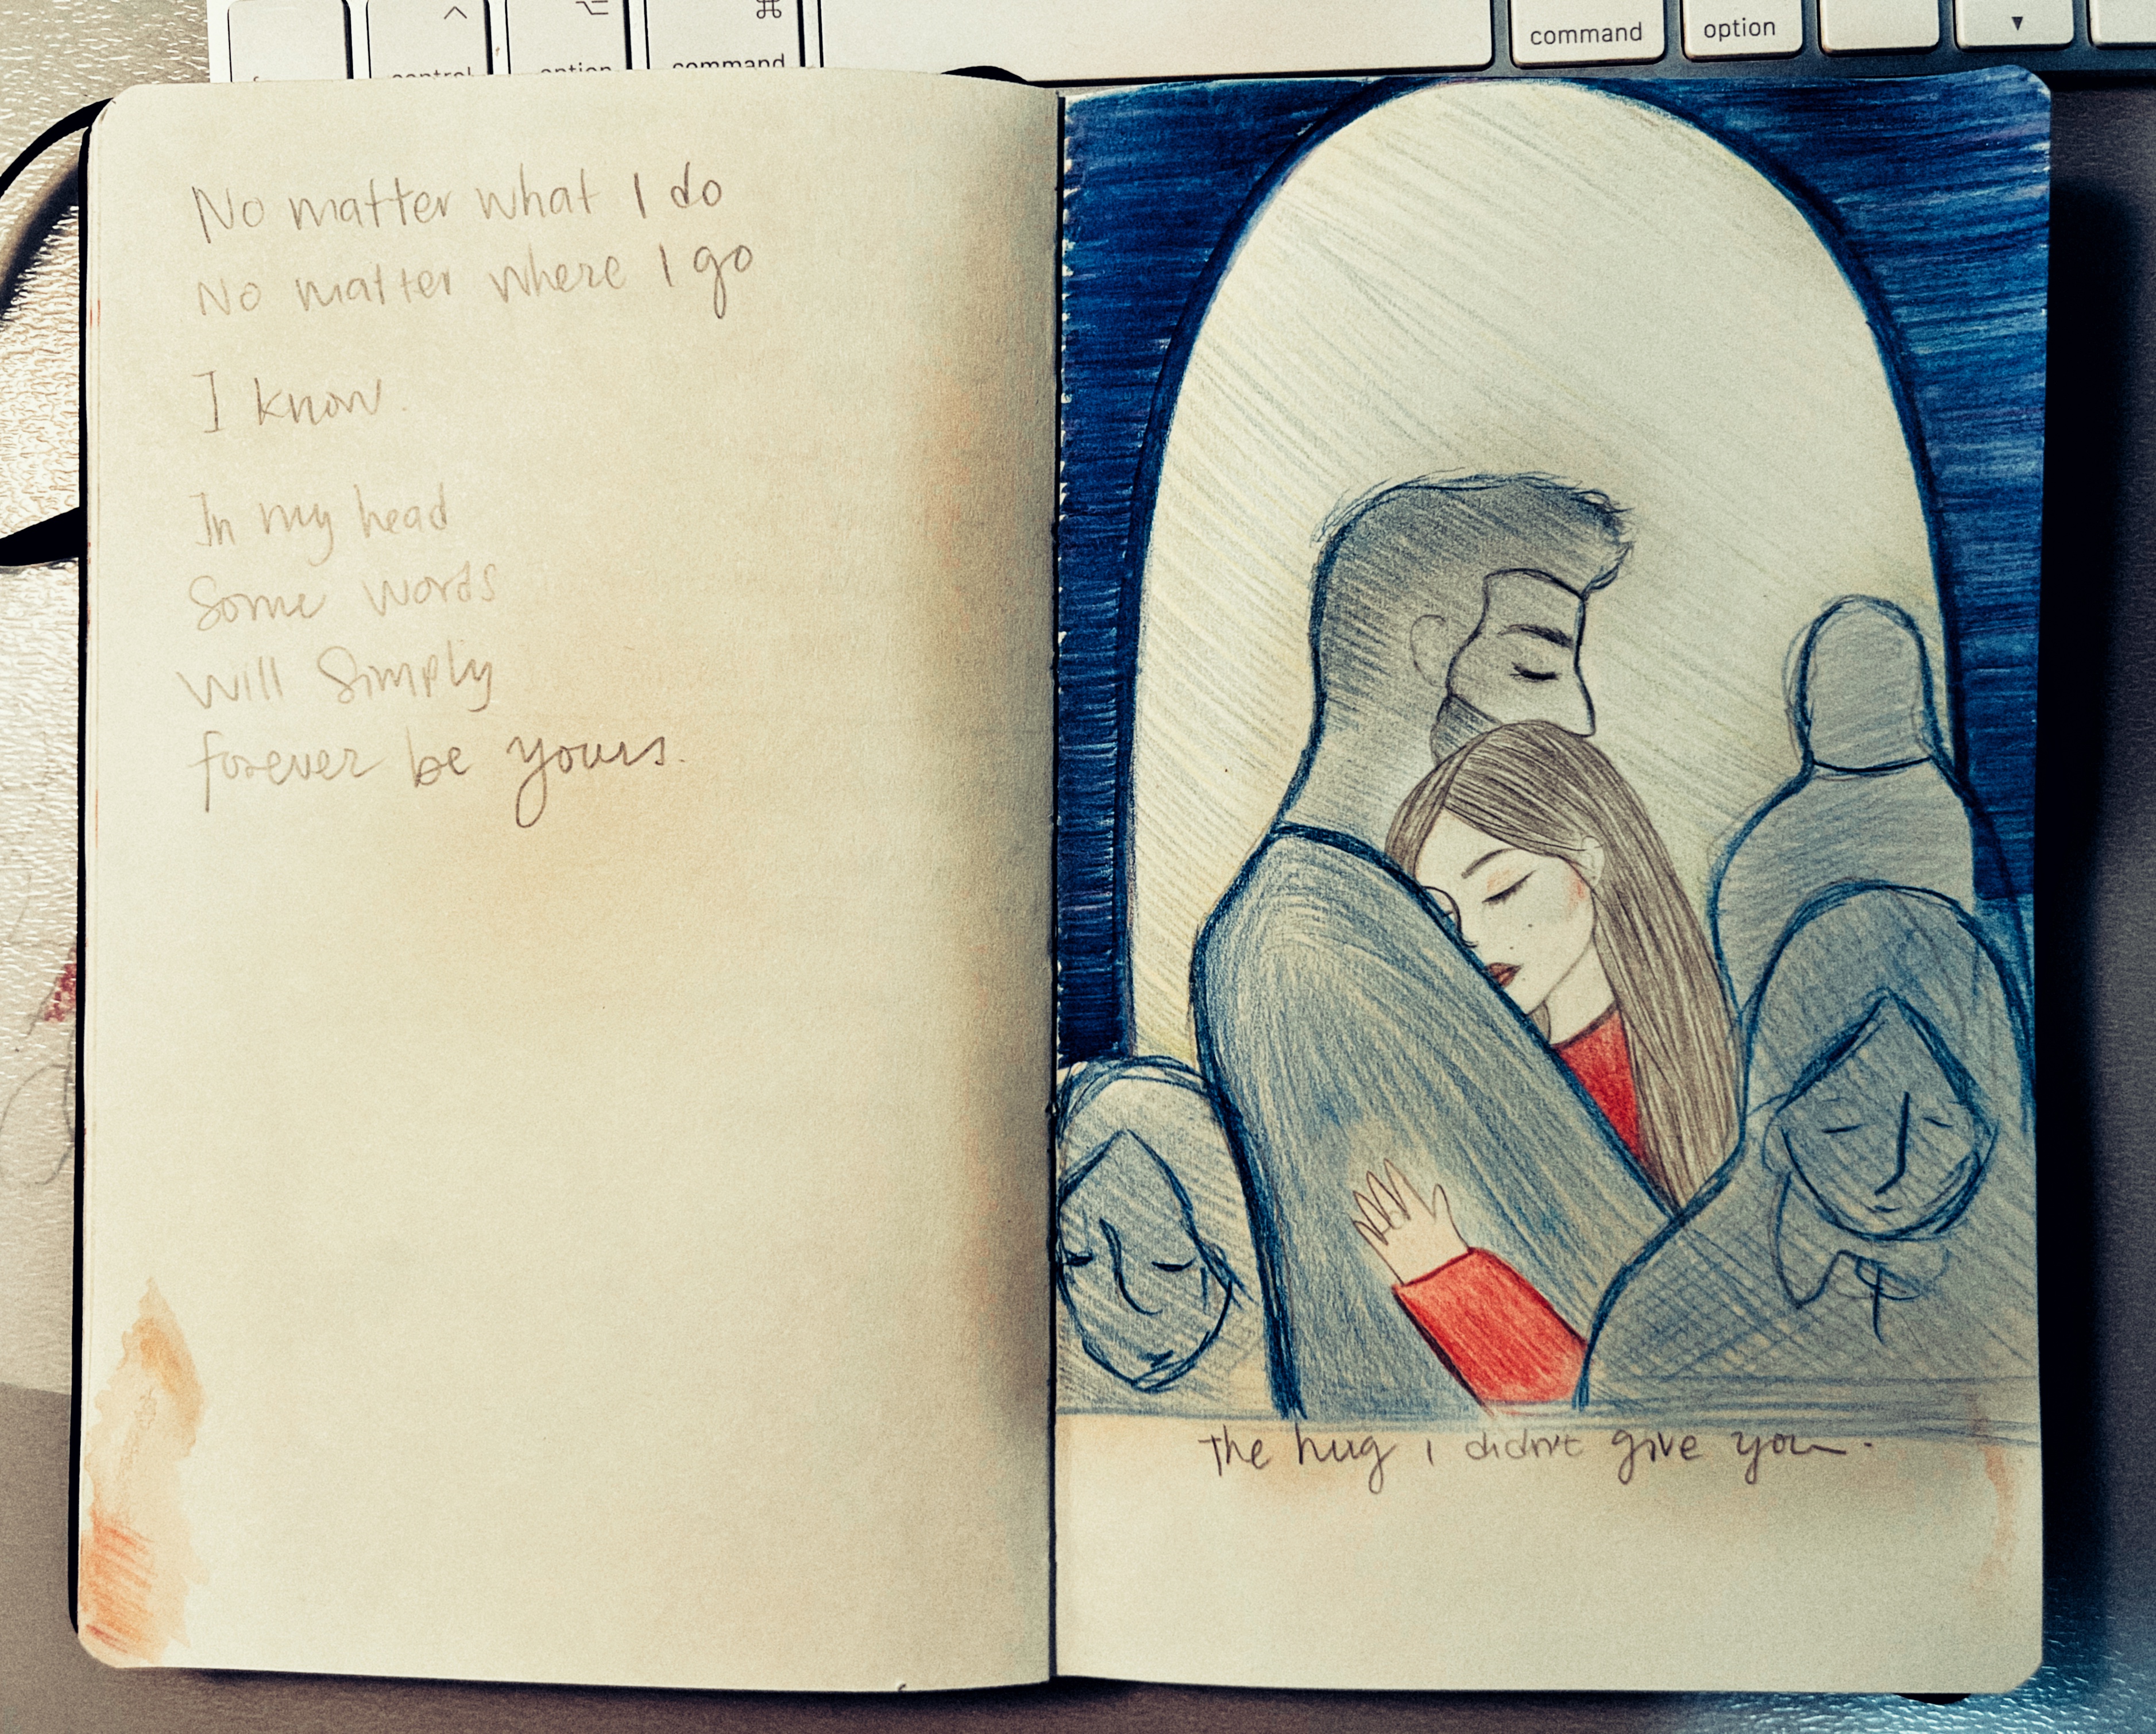 control
option
command
command
option
No matter what I do
No matter where I go
I know.
In my head
Some words
will Simply
forever be yours.
The hug I didn't give you.